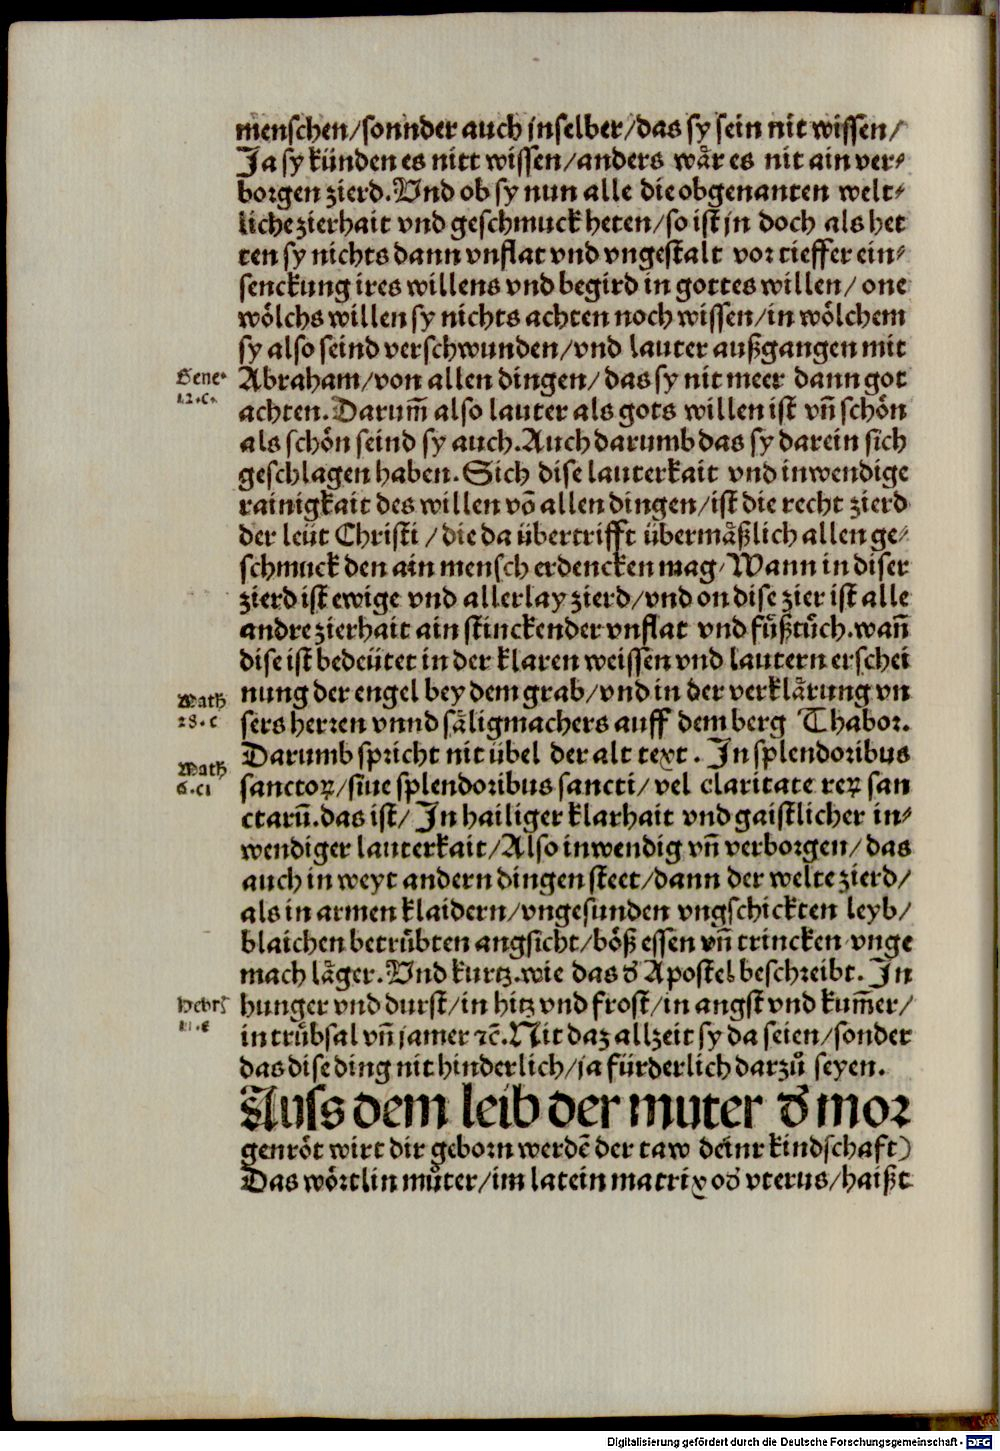 menschen/sonnder auch jnselber/das sy sein nit wissen/
Ja sy künden es nitt wissen/anders wår es nit ain ver⸗
borgen zierd. Vnd ob sy nun alle die obgenanten welt⸗
liche zierhait vnd geschmuck heten/so ist jn doch als het
ten sy nichts dann vnflat vnd vngestalt vor tieffer ein⸗
senckung ires willens vnd begird in gottes willen/ one
wôlchs willen sy nichts achten noch wissen/in wôlchem
sy also seind verschwunden/vnd lauter außgangen mit
Gene⸗
12.c.
Abraham/von allen dingen/das sy nit meer dann got
achten. Darum̃ also lauter als gots willen ist vñ schôn
als schôn seind sy auch. Auch darumb das sy darein sich
geschlagen haben. Sich dise lauterkait vnd inwendige
rainigkait des willen võ allen dingen/ist die recht zierd
der leüt Christi /die da übertrifft übermåßlich allen ge⸗
schmuck den ain mensch erdencken mag/Wann in diser
zierd ist ewige vnd allerlay zierd/vnd on dise zier ist alle
andre zierhait ain stinckender vnflat vnd fůßtůch. wañ
dise ist bedeütet in der klaren weissen vnd lautern erschei
Math
28.c
nung der engel bey dem grab/vnd in der verklårung vn
sers herren vnnd såligmachers auff dem berg Thabor.
Darumb spricht nit übel der alt text. In splendoribus
Math
6.ci
sanctoꝝ/siue splendoribus sancti/ vel claritate reꝝ san
ctarũ. das ist/ In hailiger klarhait vnd gaistlicher in⸗
wendiger lauterkait/Also inwendig vñ verborgen/ das
auch in weyt andern dingen steet/dann der welte zierd/
als in armen klaidern/vngesunden vngschickten leyb/
blaichen betrůbten angsicht/bôß essen vñ trincken vnge
mach låger. Vnd kurtz. wie das d̕ Apostel beschreibt. In
Hebre
11.e
hunger vnd durst/in hitz vnd frost/in angst vnd kum̃er/
in trůbsal vñ jamer ⁊c̃. Nit daz allzeit sy da seien/sonder
das dise ding nit hinderlich/ja fürderlich darzů seyen.
Auss dem leib der muter d̕ mor
genrôt wirt dir geborn werdẽ der taw deinr kindschaft)
Das wôrtlin můter/im latein matrix od̕ vterus/haißt
Digitalisierung gefördert durch die Deutsche Forschungsgemeinschaft - DFG